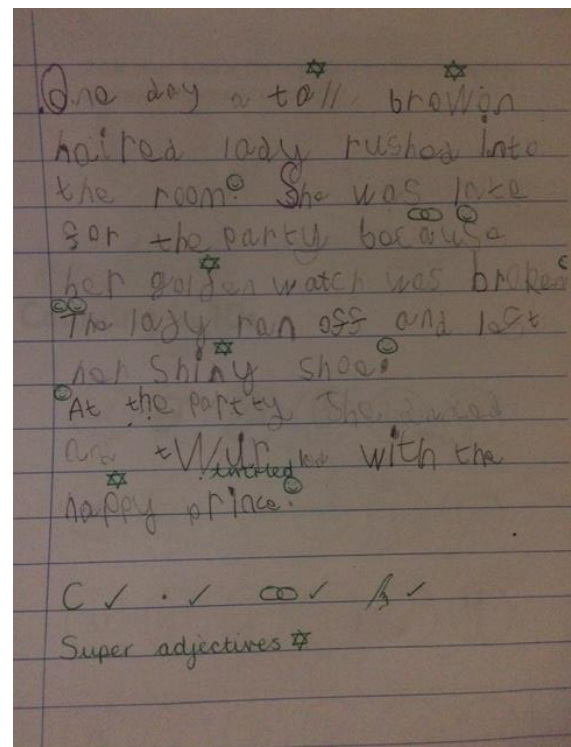 One day a tall browon
haired lady rushed into
the room. She was late
for the party because
her golden watch was broken
The lady ran off and left
her shiny shoe.
At the partty she
and twur with the
twirled
happy prince.
C ✓ . ✓ ✓ ✓
Super adjectives